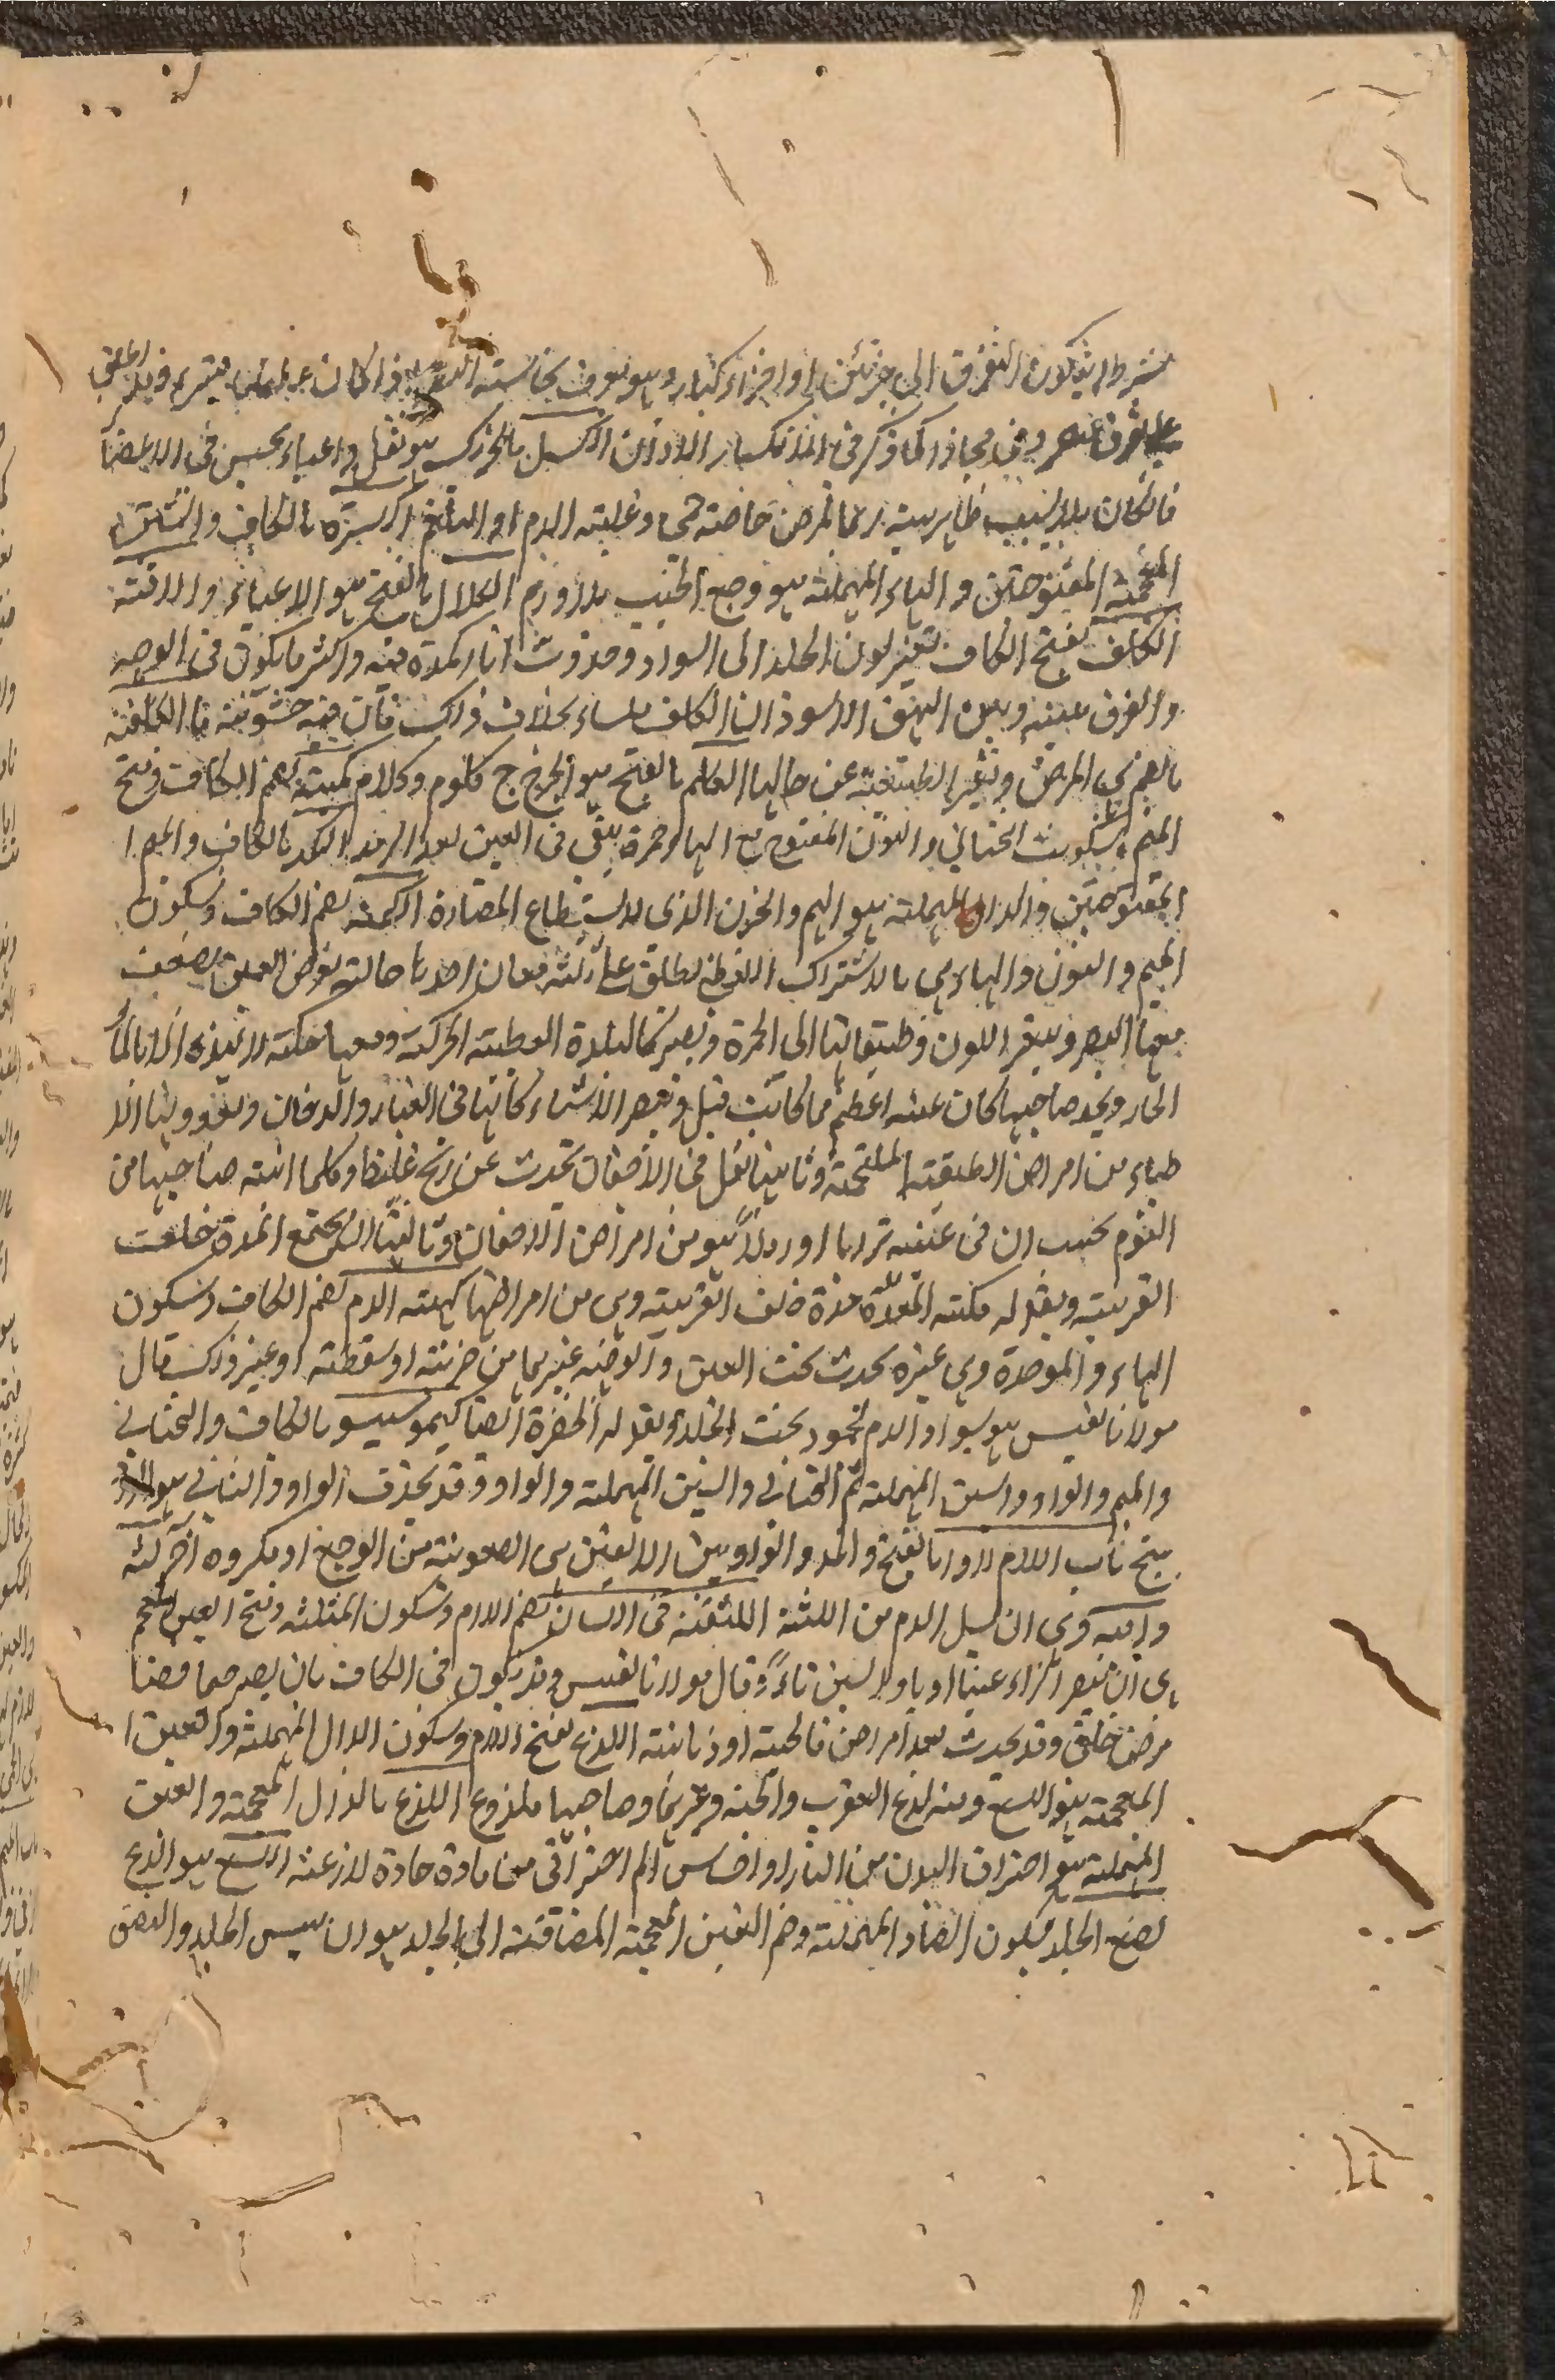 بشرط ان يكون التفرق الى جزئين او اجزاء كبار وهو يعرف بحاسة فاذا كان وقد يطلق
على تفرق وقد مجازا كما ذكر فى الانكسار الاذن الكسل بالتحريك هو ثقل واعياء يحس فى الاعضا
فان كان بلا سبب ظاهر ربما تمرض خاصة حمى وغلبة الدم او البلغم بالكاف والشين
المعجمة المفتوحتين والهاء المهملة هو وجع الجنب بلا ورم الكلال بالفتح هو الاعياء والآفة
الكلف بفتح الكاف تغير لون الجلد الى السواد وحدوث اثار كمدة فيه واكثر ما يكون فى الوجه
والفرق بينه وبين البهق الاسود ان الكلف ملساء بخلاف ذلك فان فيه خشونة ما الكلفة
بالضم هى المرض وتغير الطبيعة عن حالها الكلم بالفتح هو الجرح ج كلوم وكلام كمنة بضم الكاف وفتح
الميم وسكون التحتانى والنون المفتوح مع الهاء حمرة يبقى فى العين بعد الرمد الكمد بالكاف والميم ا
المفتوحتين والدال المهملة هو الهم والحزن الذى لا يستطاع المضارة الكمنة بضم الكاف وسكون
الميم والنون والهاء هى بالاشتراك اللفظى يطلق على ثلثة معان احدها حالة يعرض العين يضعف
معها البصر ويتغير اللون وطبقاتها الى الحمرة وتصير كالبلدة البطيئة الحركة ومعها حكة لا تهدء الا بالماء
الحار ويجد صاحبها كان عينه اعظم مما كانت قبل وتبصر الاشياء كانها فى الغبار والدخان ويعدونها الا
طباء من امراض الطبقة الملتحمة وثانيها ثقل فى الاجفان تحدث عن ريح غليظ وكلما انتبه صاحبها من
النوم يحسب ان فى عينيه ترابا او رملا هو من امراض الاجفان وثالثها ان يجتمع المدة خلف
القرنية ويقال له كمنة المدة مدة خلف القرنية وهى من امراضها كهبة الدم بضم الكاف وسكون
الهاء والموحدة وهى غبرة تحدث تحت العين والوجنة غيرهما من ضربة او سقطة او غير ذلك قال
مولانا نفيس هو سواد الدم لجمود تحت الجلد ويقال له الخضرة ايضا كيموسيسو بالكاف والتحتانى
والميم والواو والسين المهملة ثم التحتانى والسين المهملة والواو وقد يحذف الواو والثانى هو
باب اللام اللاواء بالفتح والمد والواو بين الالفين هى الصعوبة من الوجع او مكروه اخر لثة
دامية وهى ان يسيل الدم من اللثة اللثغة فى اللسان بضم اللام وسكون المثلثة وفتح الغين المعجم
هى ان تصير الراء غينا او ياء ولا السين ثاء وقال مولانا نفيس وقد تكون فى الكاف بان يصير
مرض خلقى وقد يحدث بعد امراض فالجية او ذبانية اللدغ بفتح اللام وسكون الدال المهملة والغين ا
المعجمة هو اللسع ومنه لدغ العقرب والحية وغيرهما وصاحبها ملدوغ اللذع بالذال المعجمة والعين
المهملة هو احتراق البدن من النار او احساس الم احتراقى من مادة حادة لاذعة اللسع هو اللدغ
لصغ الجلد بسكون الصاد المهملة وضم الغين المعجمة المضافة الى الجلد هو ان ييبس الجلد والصق